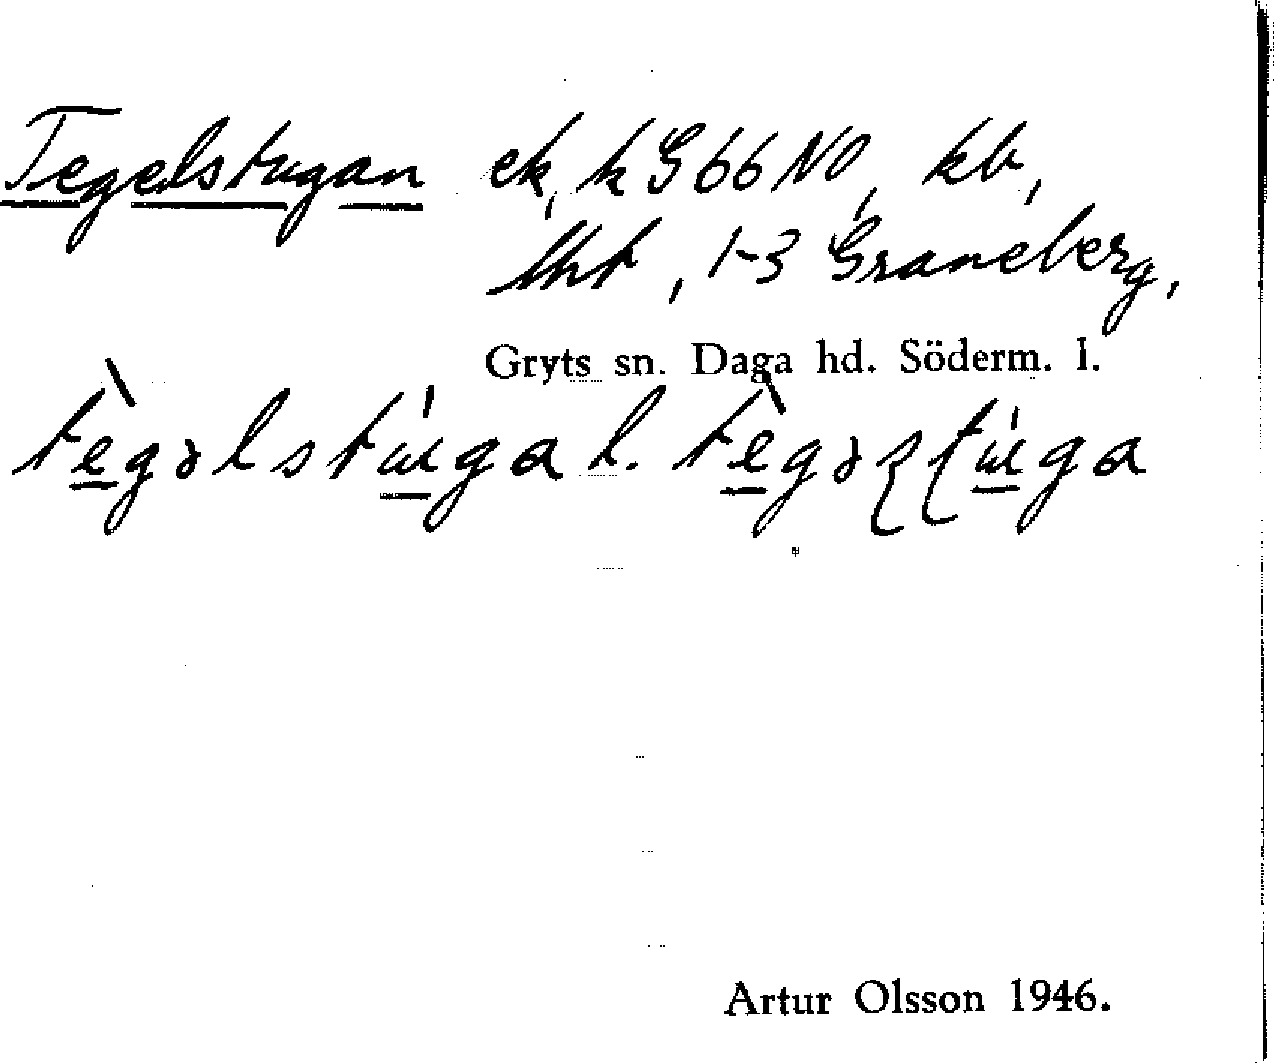 Tegelstugan ek, k G 66 NO, kb,
lht, 1-3 Graneberg,
Gryts sn. Daga hd. Söderm. l.
tègəlstúga l. tègəʂʈúga
Artur Olsson 1946.